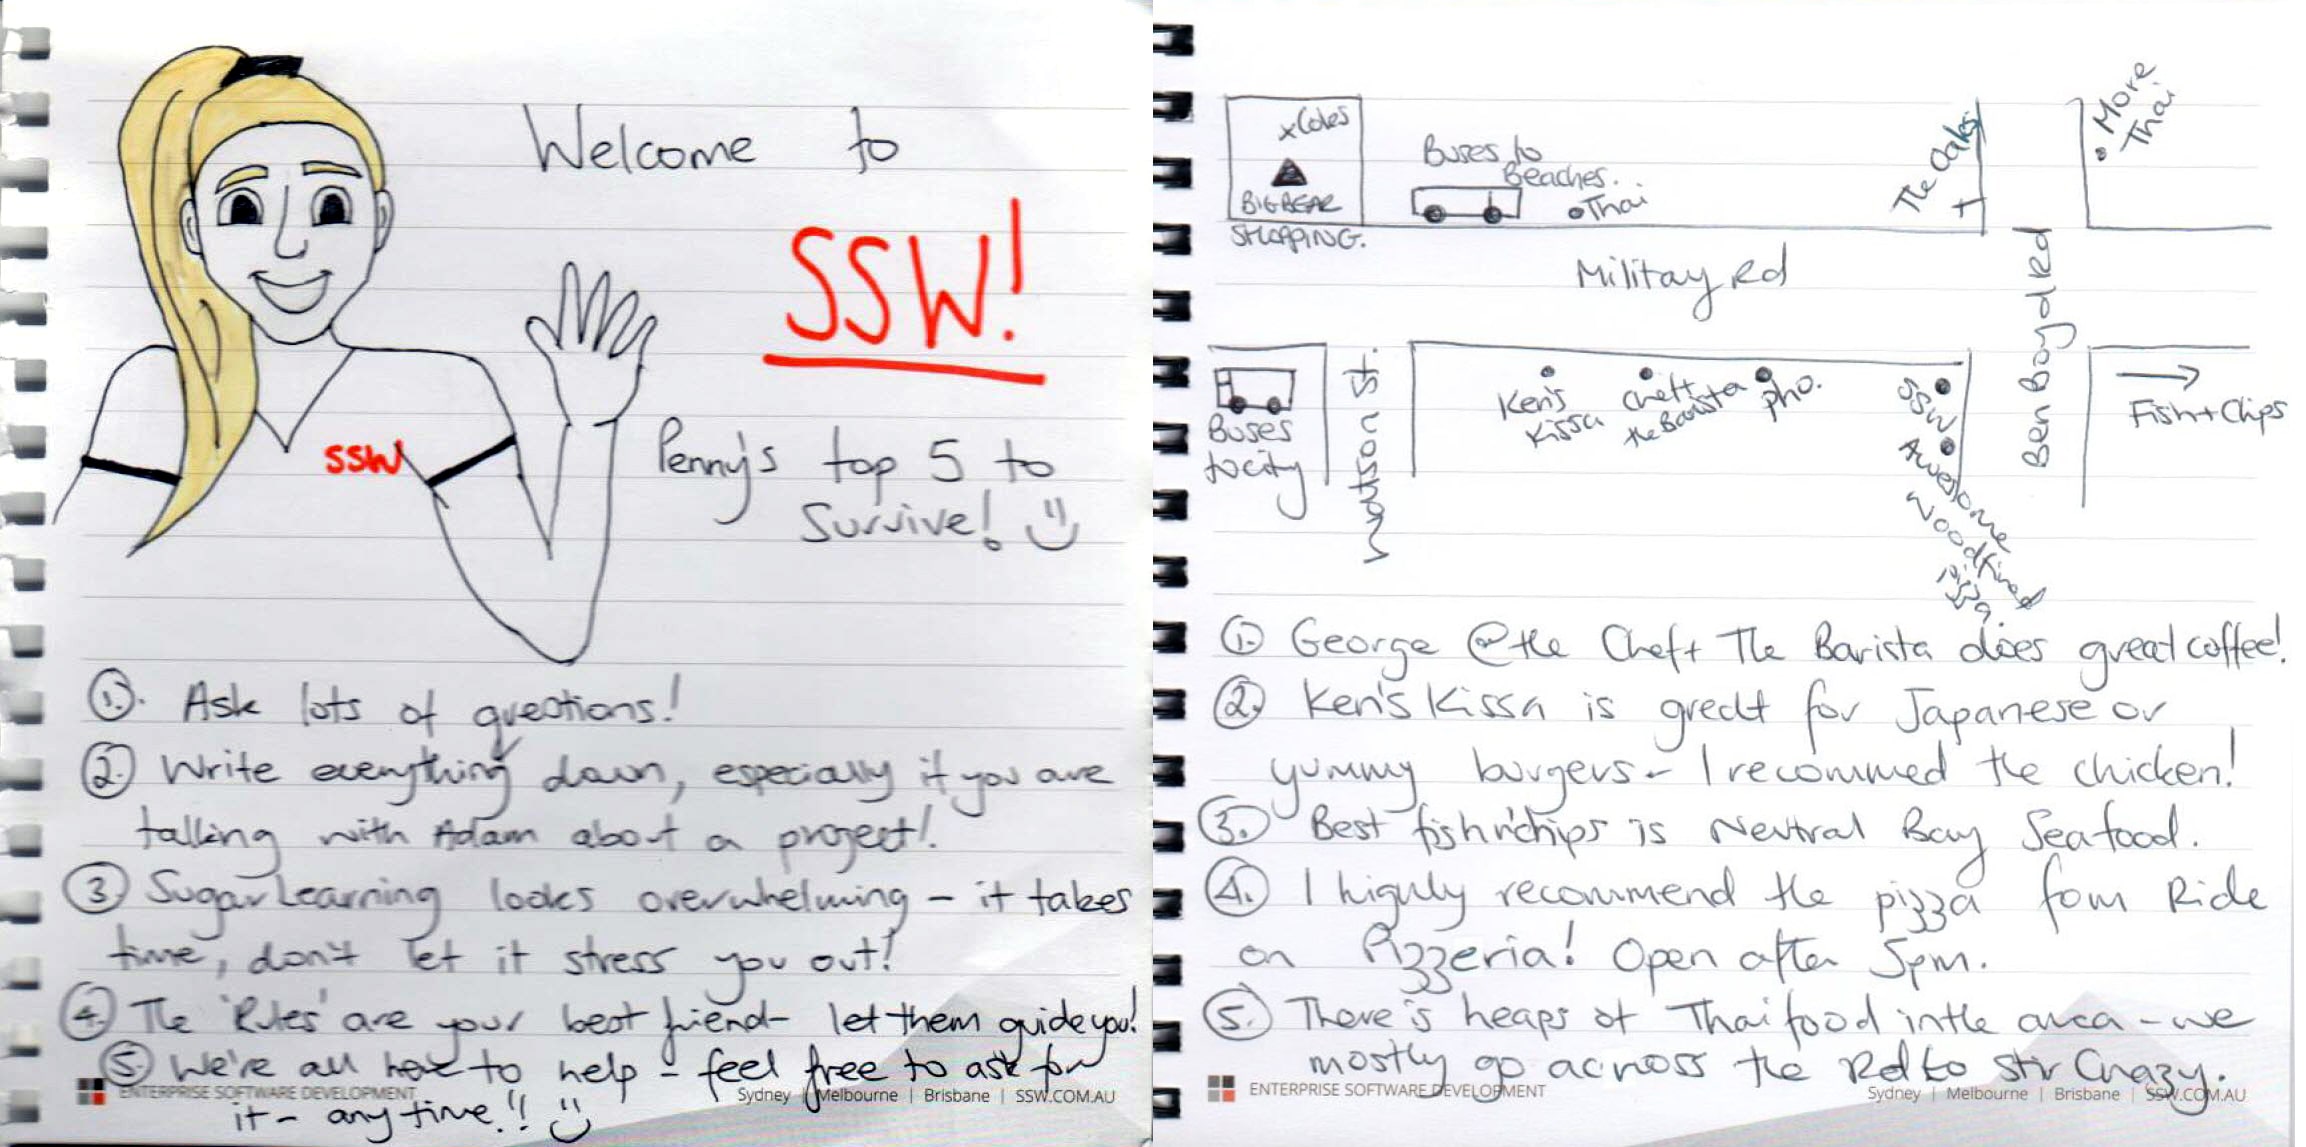 Welcome to
SSW!
SSW
Penny's top 5 to
Survive! :)
1. Ask lots of questions!
2. Write everything down, especially if you are
talking with Adam about a project!
3 SugarLearning looks overwhelming - it takes
time, don't let it stress you out!
4. The 'Rules' are your best friend - let them guide you!
5. We're all here to help - feel free to ask for
it - any time!! :)
ENTERPRISE SOFTWARE DEVELOPMENT
Sydney | Melbourne | Brisbane | SSW.COM.AU
x Coles
BIG BEAR
SHOPPING.
Buses to
Beaches.
Thai
The Oaks
More
Thai
Militay Rd
Ben Boyd Rd
Buses
to city
Watson St.
Ken's
Kissa
Chef+
the Barista
pho.
SSW
Awesome
Woodfired
Pizza
Fish + Chips
1. George @ the Chef + The Barista does great coffee!
2. Ken's Kissa is great for Japanese or
yummy burgers - I recommed the chicken!
3. Best fish n' chips is Neutral Bay Seafood.
4. I highly recommend the pizza fom Ride
on Pizzeria! Open after 5pm.
5. There's heaps of Thai food in the area - we
mostly go across the Rd to Stir Crazy.
ENTERPRISE SOFTWARE DEVELOPMENT
Sydney | Melbourne | Brisbane | SSW.COM.AU